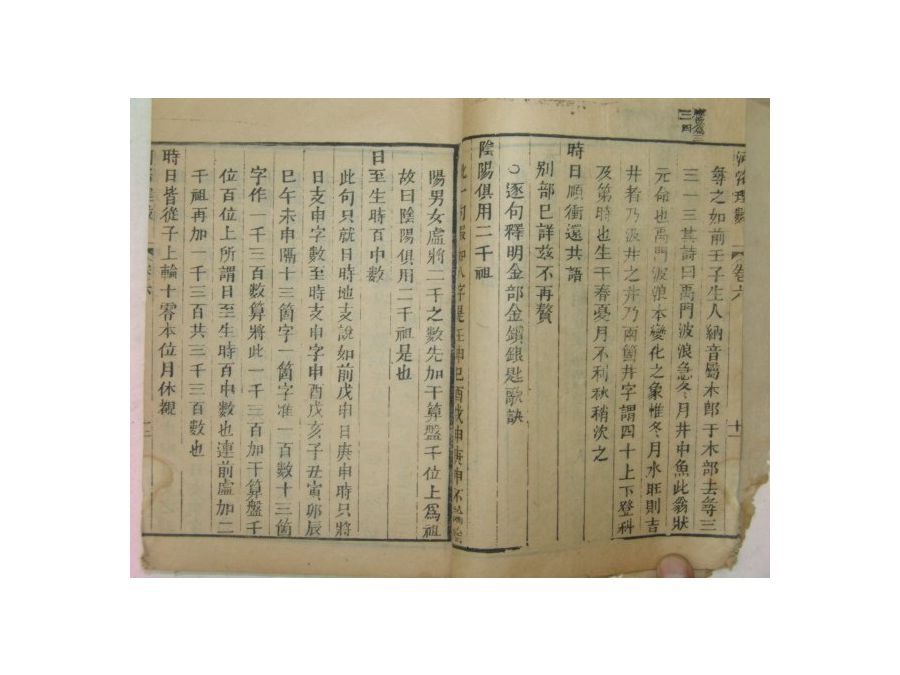 河洛理數 卷六 十二
尋之如前壬子生人納音屬木郎于木部去尋三
三一三其詩曰禹門波浪急冬月井中魚此翁狀
元命也禹門波浪本變化之象惟冬月水旺則吉
井者乃汲井之井乃兩箇井字謂四十上下登科
及第時也生于春夏月不利秋稍次之
時日順衝還共語
別部已詳茲不再贅
○逐句釋明金部金鎖銀匙歌訣
陰陽俱用二千祖
陽男女虛將二千之數先加于算盤千位上爲祖
故曰陰陽俱用二千祖是也
日至生時百中數
此句只就日時地支說如前戊申日庚申時只將
日支申字數至時支申字申酉戌亥子丑寅卯辰
巳午未申隔十三箇字一箇字准一百數十三箇
字作一千三百數算將此一千三百加于算盤千
位百位上所謂日至生時百中數也連前虛加二
千祖再加一千三百共三千三百數也
時日皆從子上輪十零本位月休觀